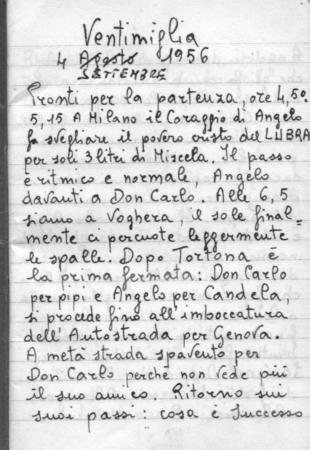 Ventimiglia
4 Agosto 1956
SETTEMBRE
Pronti per la partenza, ore 4,50.
5,15 A Milano il Coraggio di Angelo
fa svegliare il povero cristo del LUBRA
per soli 3 litri di Miscela. Il passo
è ritmico e normale, Angelo
davanti a Don Carlo. Alle 6,5
siamo a Voghera, il sole final=
mente ci percuote leggermente
le spalle. Dopo Tortona è
la prima fermata: Don Carlo
per pipi e Angelo per Candela,
si procede fino all'imboccatura
dell'Autostrada per Genova.
A metà strada spavento per
Don Carlo perchè non vede più
il suo amico. Ritorno sui
suoi passi: cosa è successo